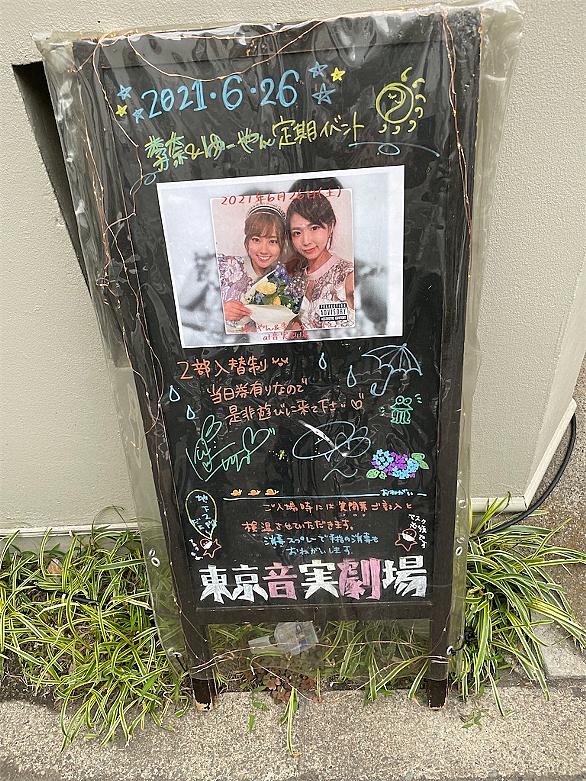 2021・6・26
李奈&ゆーやん定期イベント
2021年6月26日(土)
PARENTAL
ADVISORY
2部入替制
当日券有りなので
是非遊びに来て下さい♡
おねがい
ご入場時には質問票ご記入と
検温させていただきます。
消毒スプレーで手指の消毒も
おねがいします。
マスク
必須です
東京音実劇場